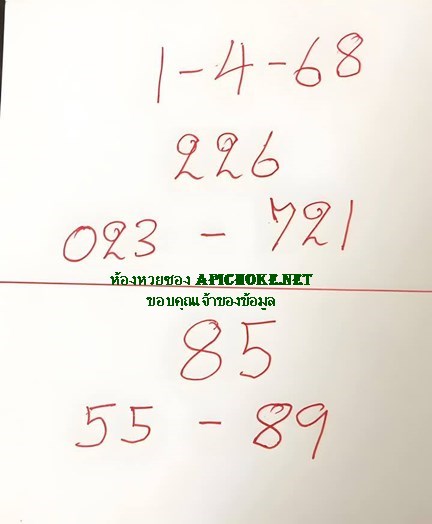 1-4-68
226
023 - 721
ห้องหวยซอง APICHOKE.NET
ขอบคุณเจ้าของข้อมูล
85
55 - 89